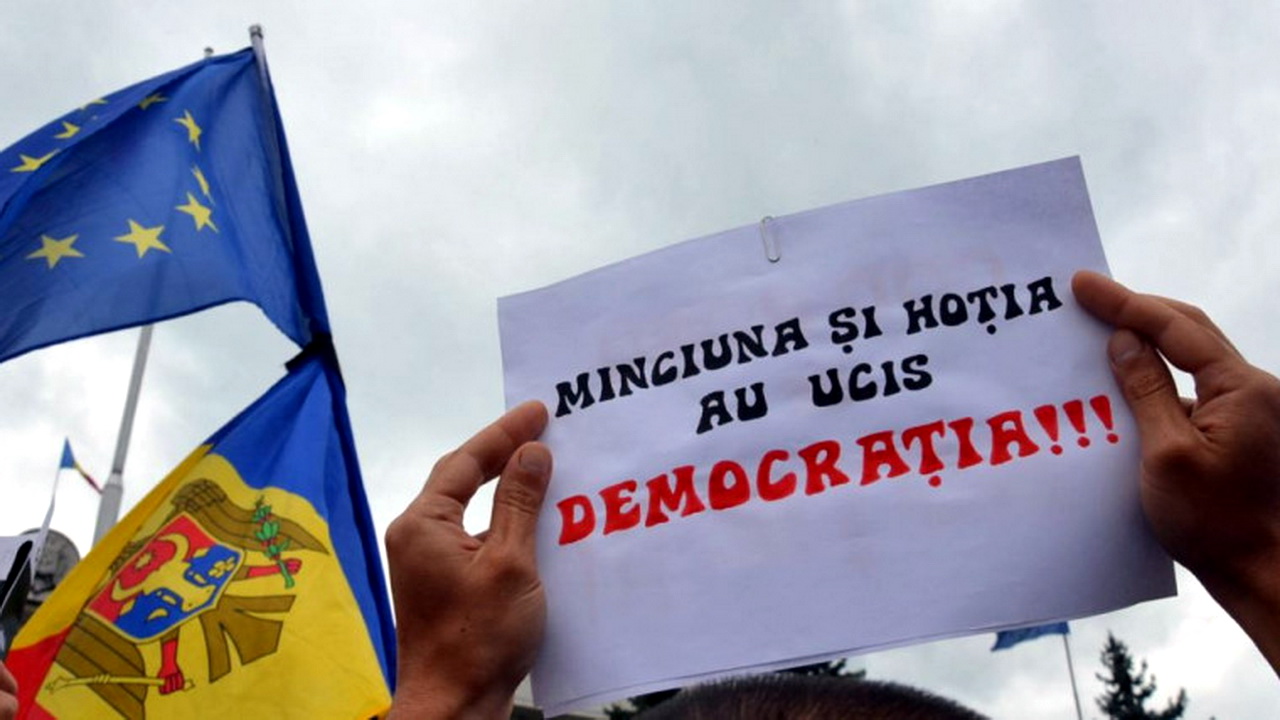 MINCIUNA ȘI HOȚIA
AU UCIS
DEMOCRAȚIA!!!